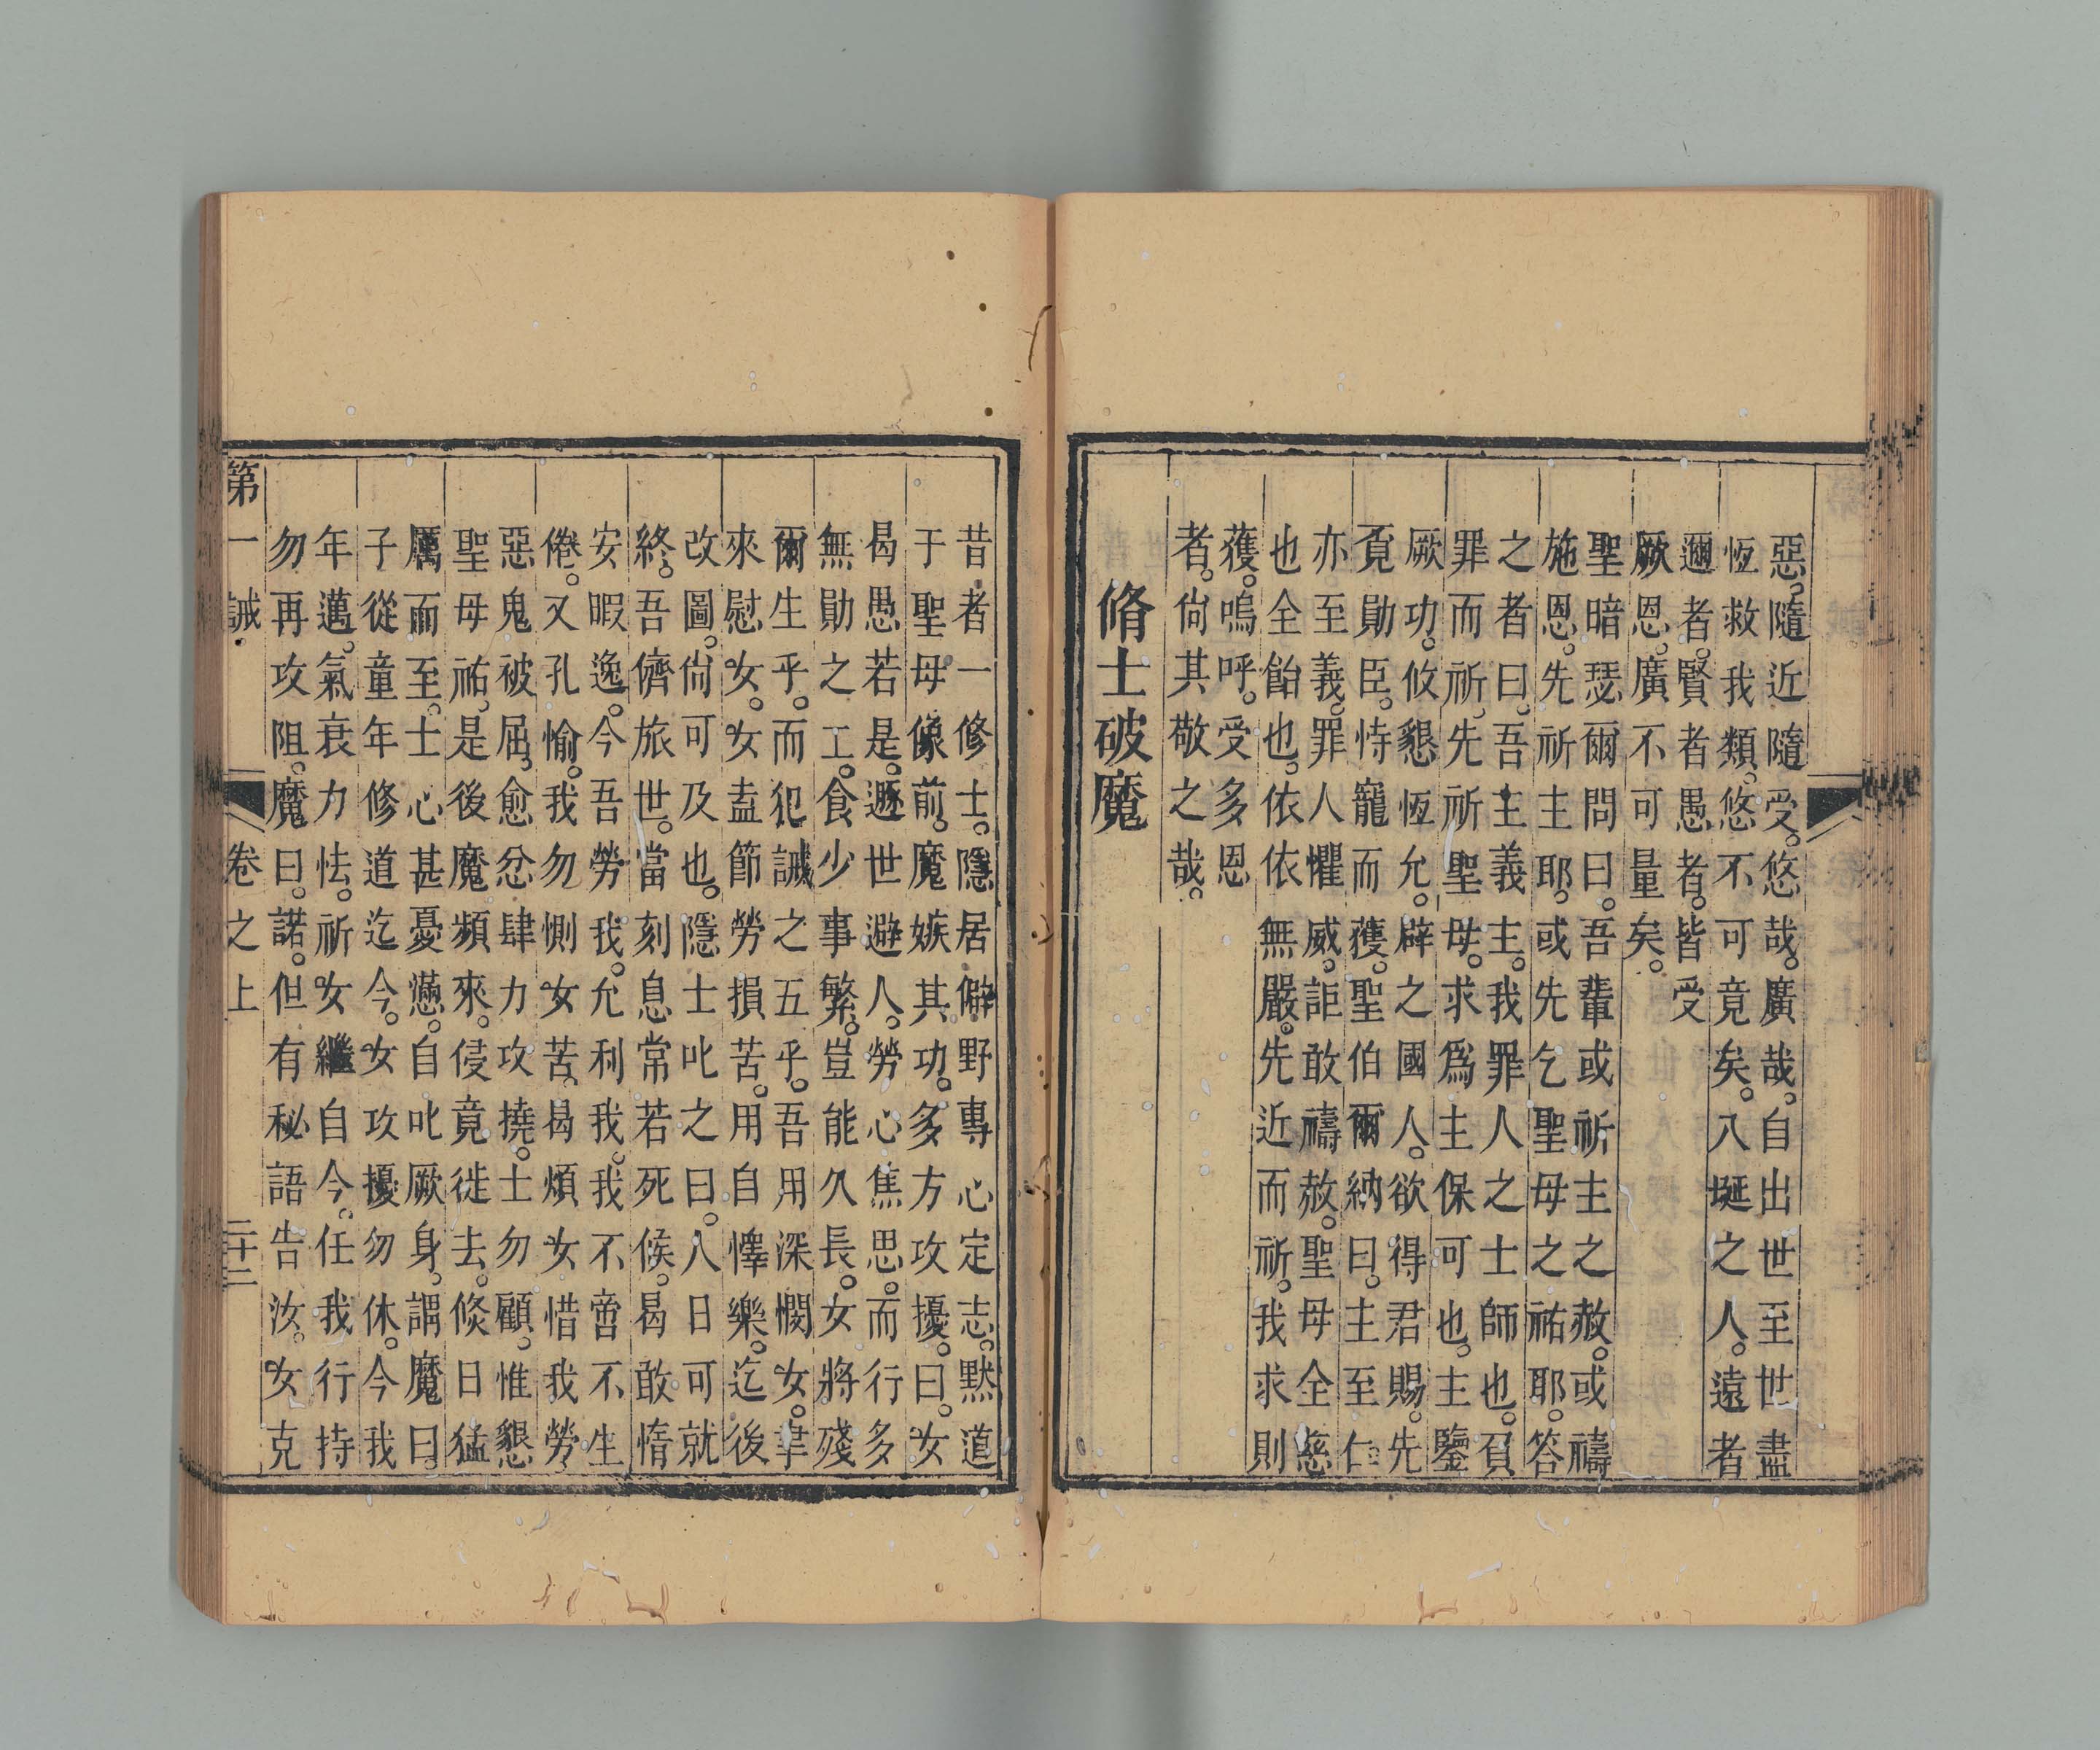 惡。隨近隨受。悠哉。廣哉。自出世至世盡
恆救我類。悠不可竟矣。八埏之人。遠者
邇者。賢者愚者。皆受
厥恩。廣不可量矣。
聖暗瑟爾問曰。吾輩或祈主之赦。或禱
施恩。先祈主耶。或先乞聖母之祐耶。答
之者曰。吾主義主。我罪人之士師也。負
罪而祈。先祈聖母。求爲主保可也。主鑒
厥功。攸懇恆允。辟之國人。欲得君賜。先
覓勛臣。恃寵而獲。聖伯爾納曰。主至仁
亦至義。罪人懼威。詎敢禱赦。聖母全慈
也全飴也。依依無嚴。先近而祈。我求則
獲。嗚呼。受多恩
者。尙其敬之哉。
脩士破魔
昔者一修士。隱居僻野專心定志。黙道
于聖母像前。魔嫉其功。多方攻擾。曰。女
曷愚若是。遯世避人。勞心焦思。而行多
無勛之工。食少事繁。豈能久長。女將殘
爾生乎。而犯誡之五乎。吾用深憫女。聿
來慰女。女盍節勞損苦。用自懌樂。迄後
改圖。尙可及也。隱士叱之曰。人日可就
終。吾儕旅世。當刻息常若死候。曷敢惰
安暇逸。今吾勞我。允利我。我不啻不生
倦。又孔愉。我勿惻女苦。曷煩女惜我勞。
惡鬼被屈。愈忿肆力攻撓。士勿顧。惟懇
聖母祐。是後魔頻來。侵竟徙去。倏日猛
厲而至。士心甚憂懣。自叱厥身。謂魔曰。
子從童年修道迄今。女攻擾勿休。今我
年邁。氣衰力怯。祈女繼自今。任我行持
勿再攻阻。魔曰。諾。但有秘語告汝。女克
第一誡 卷之上 二十二